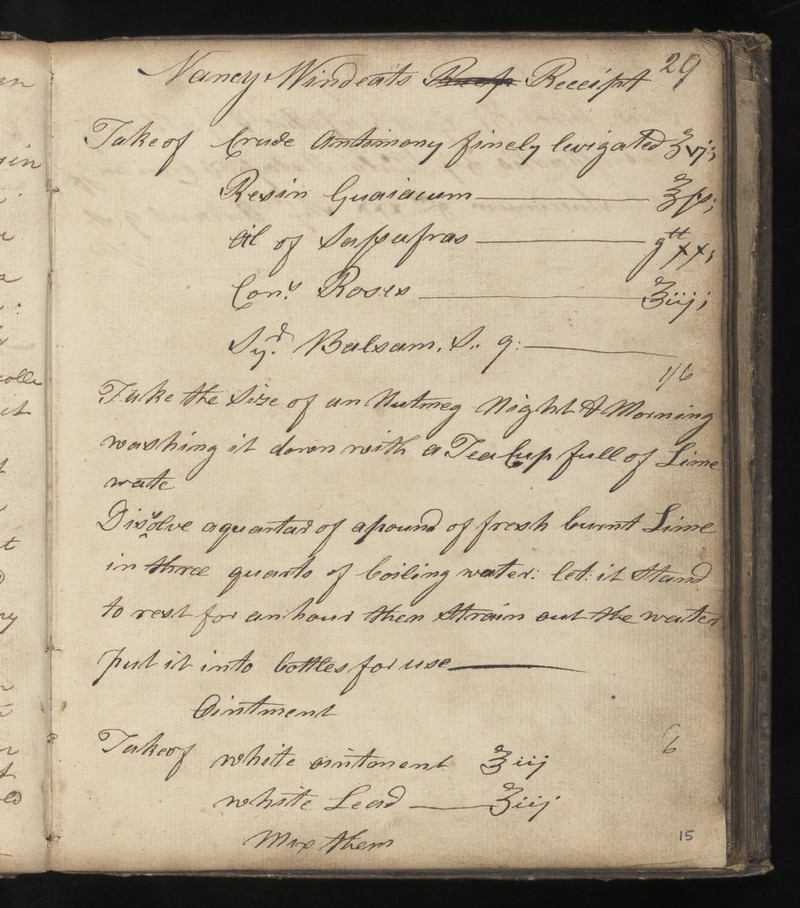 29
Nancy Windeats Receipt
Take of Crude Antimony finely levigated ℥vj;
Resin Guaiacum ℥ſs;
Oil of Saſsafras gtt xx;
Cons Roses ℥iij;
Syr. Balsam. S.. q:
1/6
Take the Size of an Nutmeg Night & Morning
washing it down with a Tea Cup full of Lime
wate
Disolve a quartar of a pound of fresh burnt Lime
in three quarts of boiling water: let: it Stand
to rest for an hour then Strain out the water
put it into bottles for use
Ointment
Take of white ointment ℥iij
6
white Lead ʒiij
Mix them
15